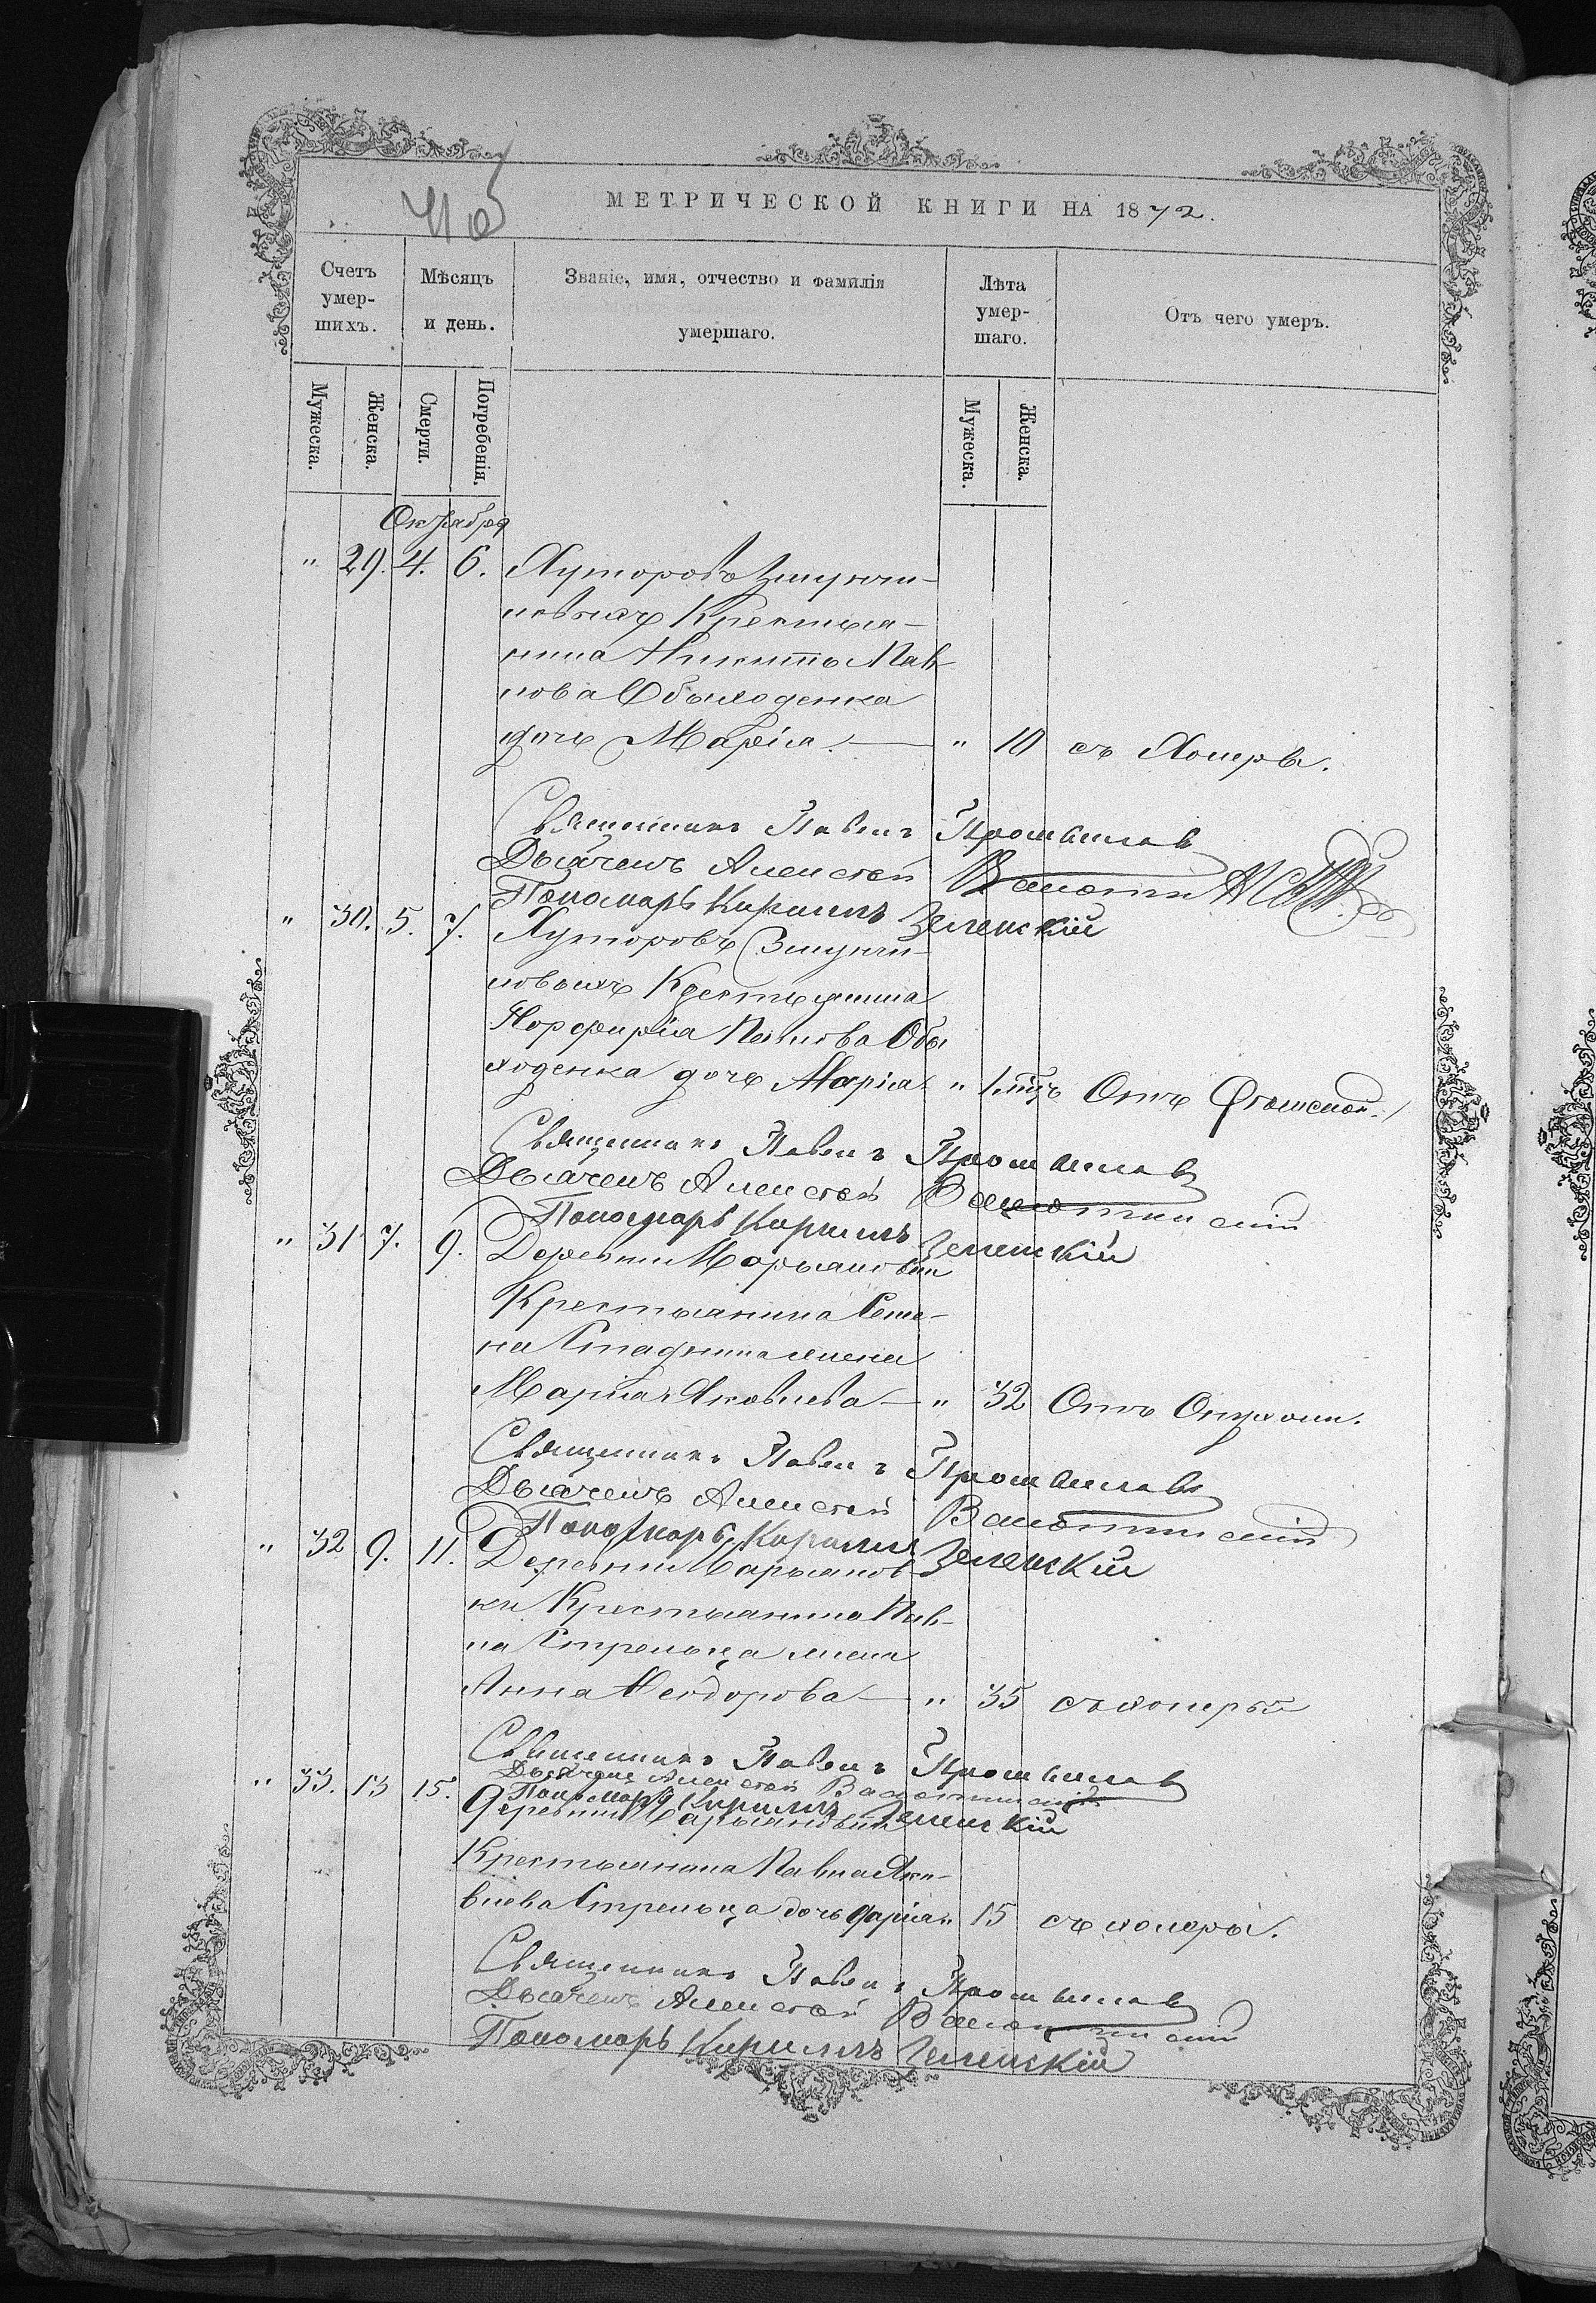 МЕТРИЧЕСКОЙ КНИГИ НА 1872.
Счетъ умер-шихъ.
Мѣсяцъ и день.
Званіе, имя, отчество и фамилія умершаго.
Лѣта умер-шаго.
Отъ чего умеръ.
Мужеска.
Женска.
Смерти.
Погребенія.
Мужеска.
Женска.
Октября
" 29. 4. 6. Хуторовъ
новыхъ Крестья-
нина Никиты Пав-
лова Обыходенка
дочь Марія. — " 10 съ Холеры.
Священникъ Павелъ
Дьячекъ Алексѣй
Пономарь Кириллъ Зеленскій
" 30. 5. 7. Хуторовъ
новыхъ Крестьянина
Порфирія Павлова Обы
ходенка дочь Марія " 1 мѣц Отъ
Священникъ Павелъ
Дьячекъ Алексѣй
Пономарь Кириллъ Зеленскій
" 31 7. 9. Деревни Марьяновки
Крестьянина Семе-
на жена
Марія Яковлева — " 32 Отъ Опухоли.
Священникъ Павелъ
Дьячекъ Алексѣй
Пономарь Кириллъ Зеленскій
" 32 9. 11. Деревни Марьянов-
ки Крестьянина Пав-
ла Стрельца жена
Анна Феодорова — " 35 съ холеры
Священникъ Павелъ
" 33. 13 15. Дьячекъ Алексѣй
Пономарь Кириллъ Зеленскій
Деревни Марьяновки
Крестьянина Павла Яко-
влева Стрельца дочь Дарія " 15 съ холеры.
Священникъ Павелъ
Дьячекъ Алексѣй
Пономарь Кириллъ Зеленскій